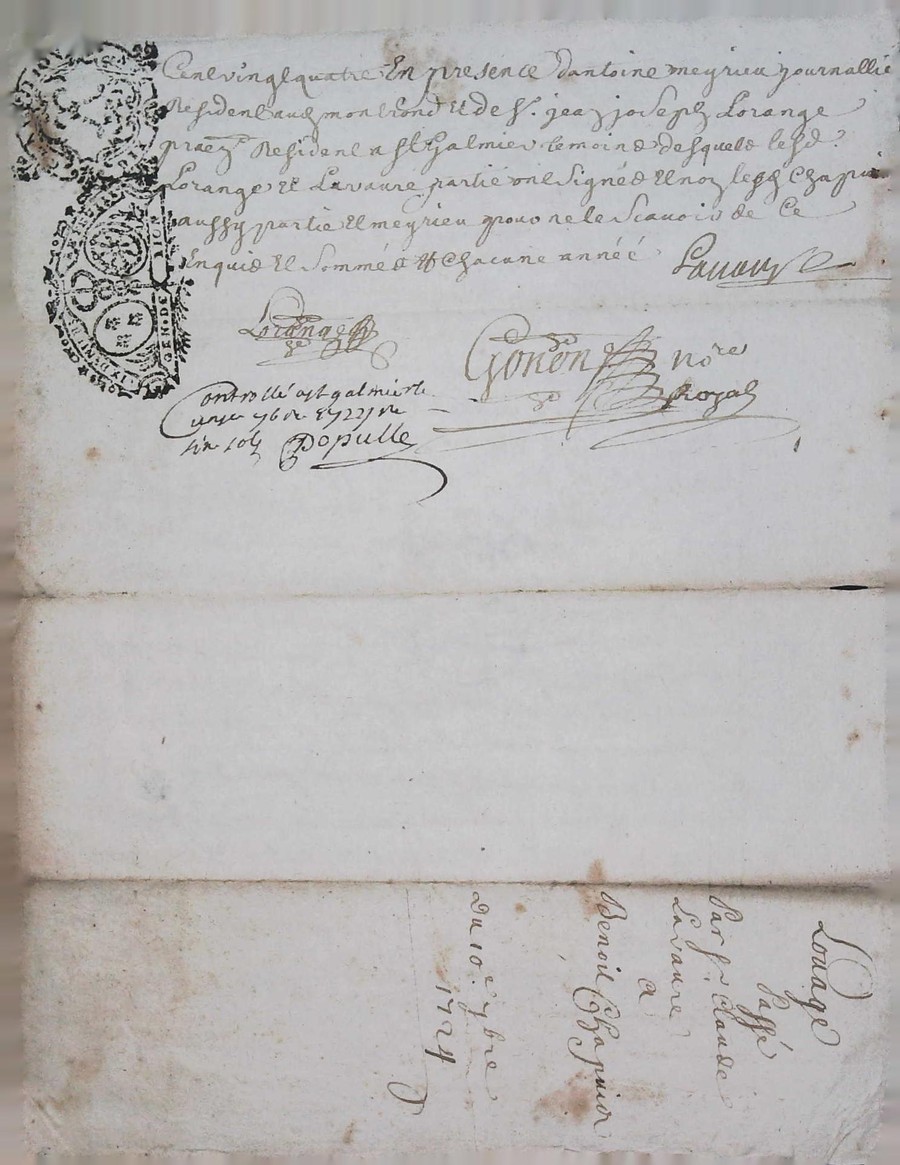 Cent vingt quatre En presence dantoine meyrieu journallie
Resident aud montrond Et de Sr. jean joseph Lorange
praen Resident a St Galmier temoins desquels lesd.
Lorange Et Lavaure partie ont Signés Et non led Chapuis
aussy partie Et meyrieu pour ne le Scavoir de Ce
Enquis Et Sommés Chacune année
Lavaure
Lorange
Gonon Nore
Royal
Controllé a St galmier le
7bre 1724
dix sols Populle
GEN.DE LION
Louage
Passé
Par Sr. Claude
Lavaure
a
Benoit Chapuis
Du 10e 7bre
1724